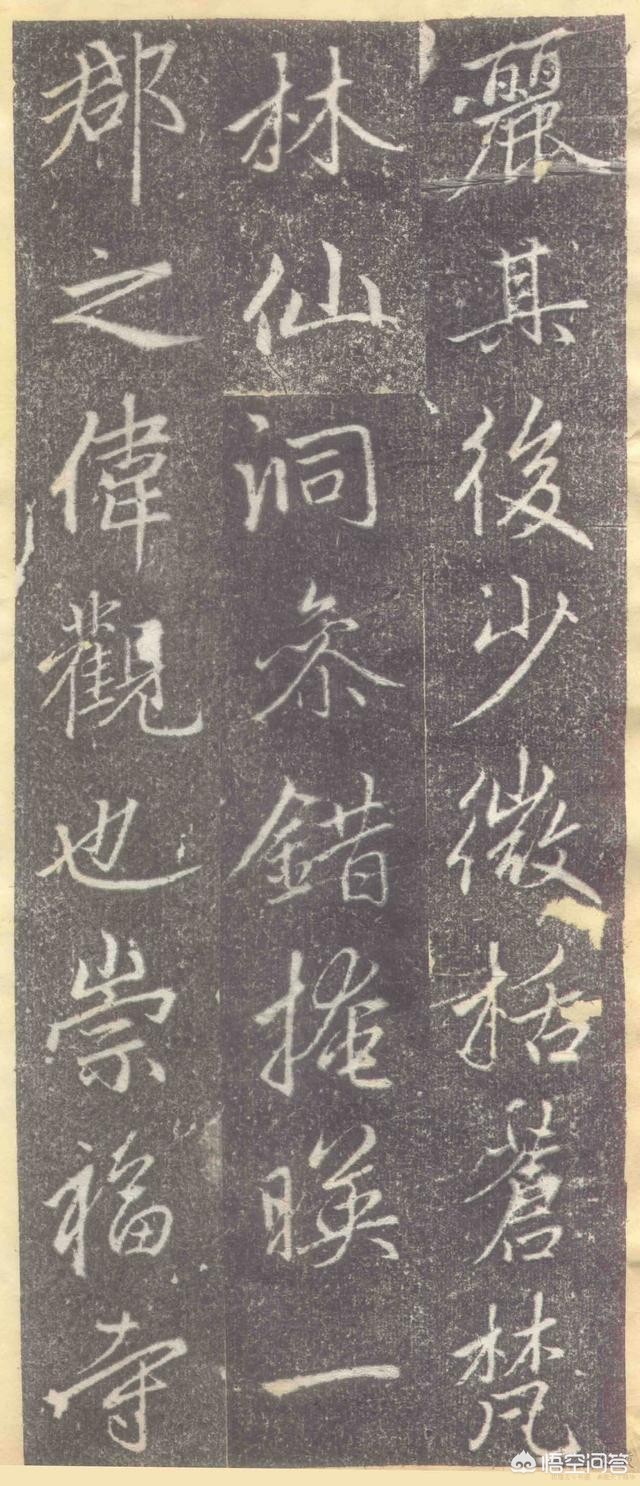 麗其後少微括蒼梵
林仙洞叅錯掩暎一
郡之偉觀也崇福寺
悟空问答